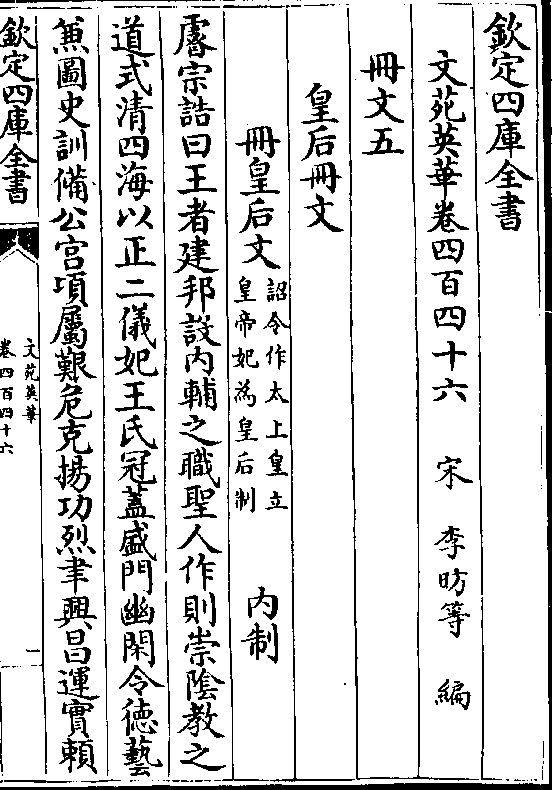 欽定四庫全書
文苑英華卷四百四十六 宋 李昉等 編
冊文五
皇后冊文
冊皇后文 詔令作太上皇立皇帝妃為皇后制 内制
睿宗誥曰王者建邦設内輔之職聖人作則崇陰教之
道式清四海以正二儀妃王氏冠蓋盛門幽閑令徳藝
兼圖史訓備公宫項屬艱危克揚功烈聿興昌運實賴
欽定四庫全書
文苑英華
卷四百四十六
一